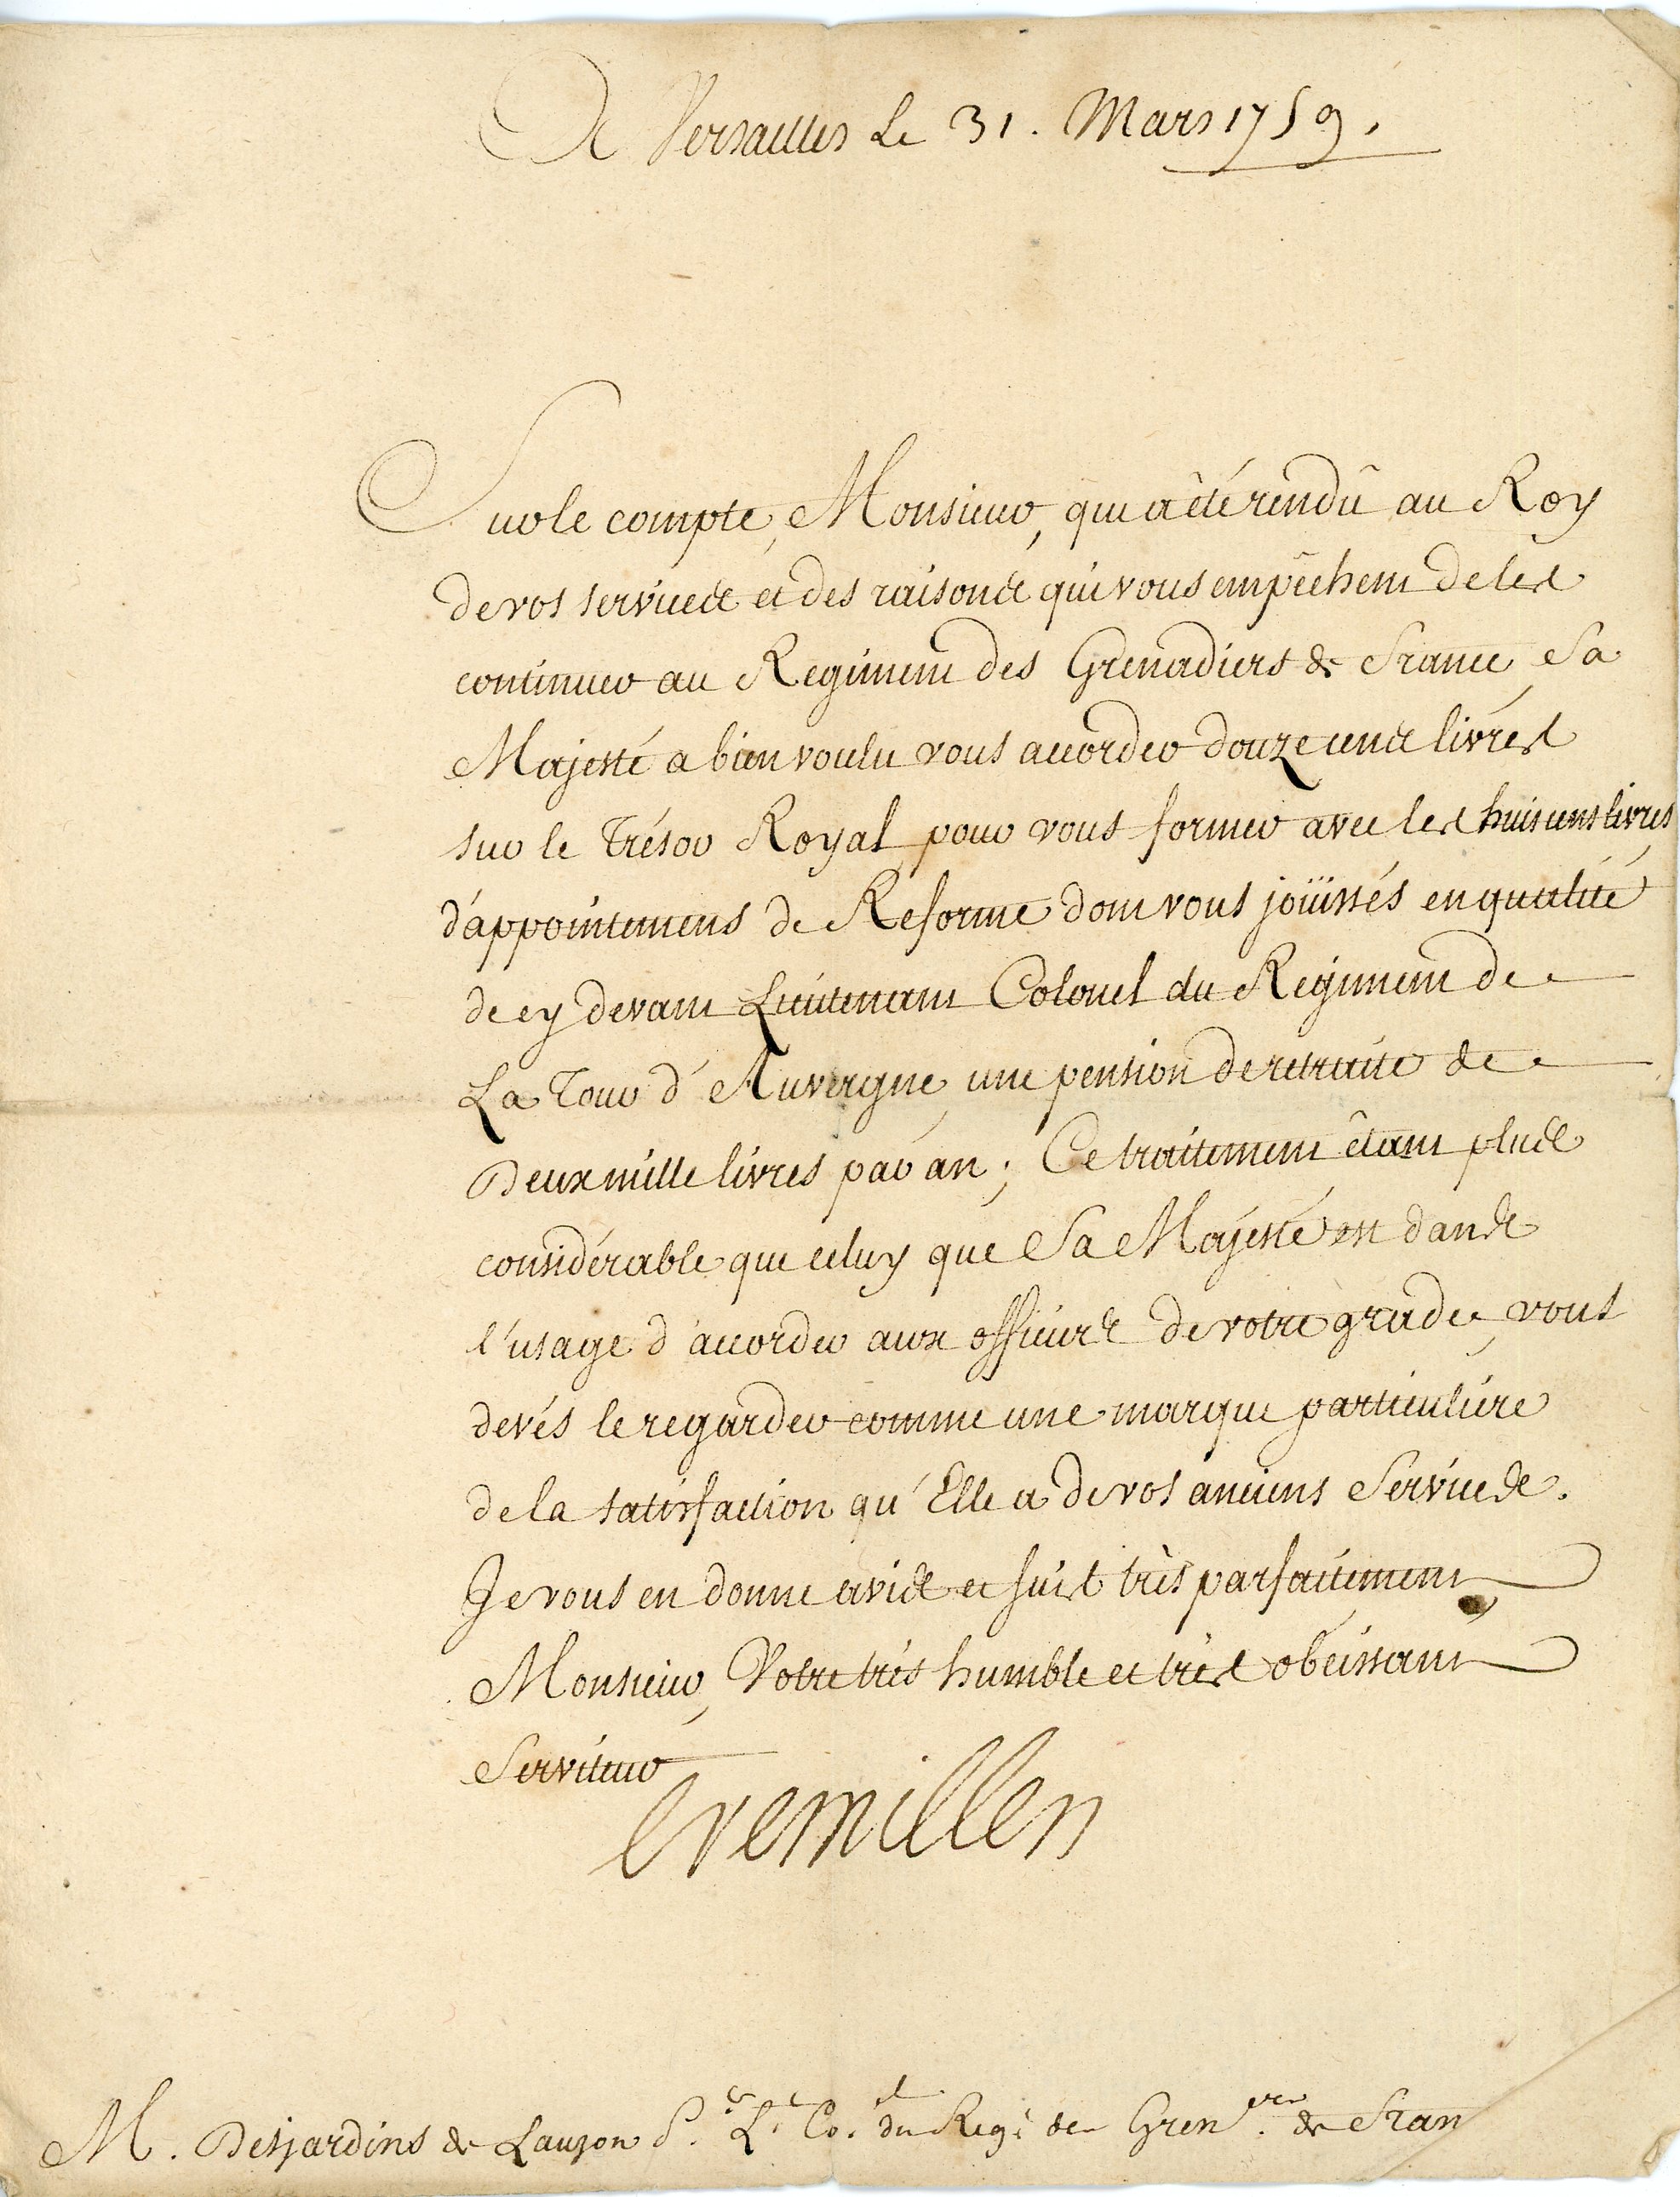 A Versailles Le 31. Mars 1759.
Sur le compte, Monsieur, qui a été rendû au Roy
de vos services et des raisons qui vous empêchent de les
continuer au Regiment des Grenadiers de France, Sa
Majesté a bien voulu vous accorder douze cens livres
sur le Trésor Royal, pour vous former avec les huit cens livres
d'appointemens de Reforme dont vous joüissés en qualité
de cy devant Lieutenant Colonel du Regiment de
La Tour d'Auvergne, une pension de retraite de
Deux mille livres par an; Ce traitement êtant plus
considérable que celuy que Sa Majesté est dans
l'usage d'accorder aux officiers de votre grade, vous
devés le regarder comme une marque particuliére
de la satisfaction qu'Elle a de vos anciens Services.
Je vous en donne avis et suis très parfaitement,
Monsieur, Votre très humble et très obéissant
Serviteur
Cremillen
M. Desjardins de Lauzon Lt. Col. du Regt. des Greners. de Fran